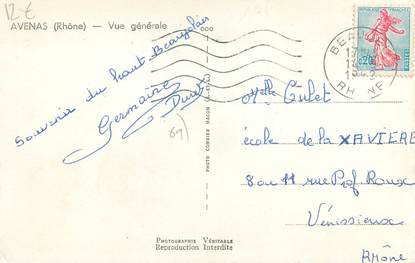 12 €
AVENAS (Rhône) — Vue générale
Souvenir du haut-Beaujolais
Germaine
(69)
PHOTOGRAPHIE VÉRITABLE
Reproduction Interdite
PHOTO COMBIER MACON
BEAUJEU
RHONE
REPUBLIQUE FRANÇAISE
0,20
POSTES
Melle Culet
école de la XAVIÈRE
8 ou 11 rue Prof Roux
Vénissieux
RHÔNE